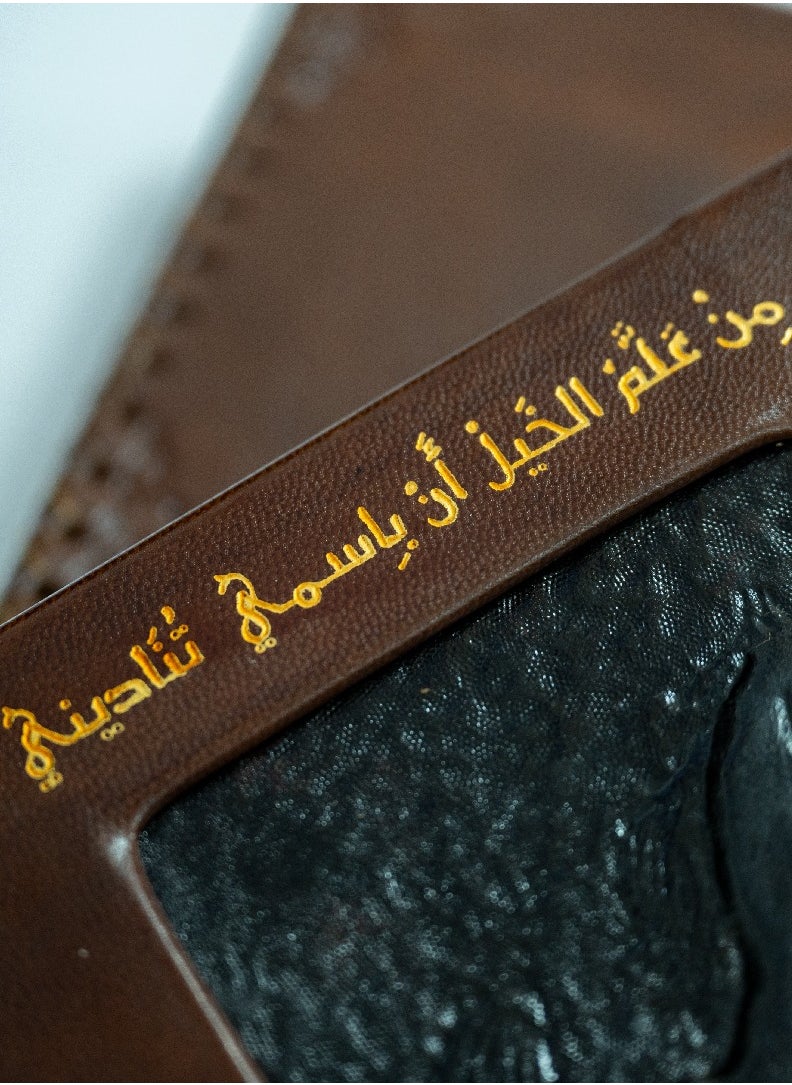 مِنْ عَلَّمَ الخَيلْ أَنْ بِاسمي تُنَاديني